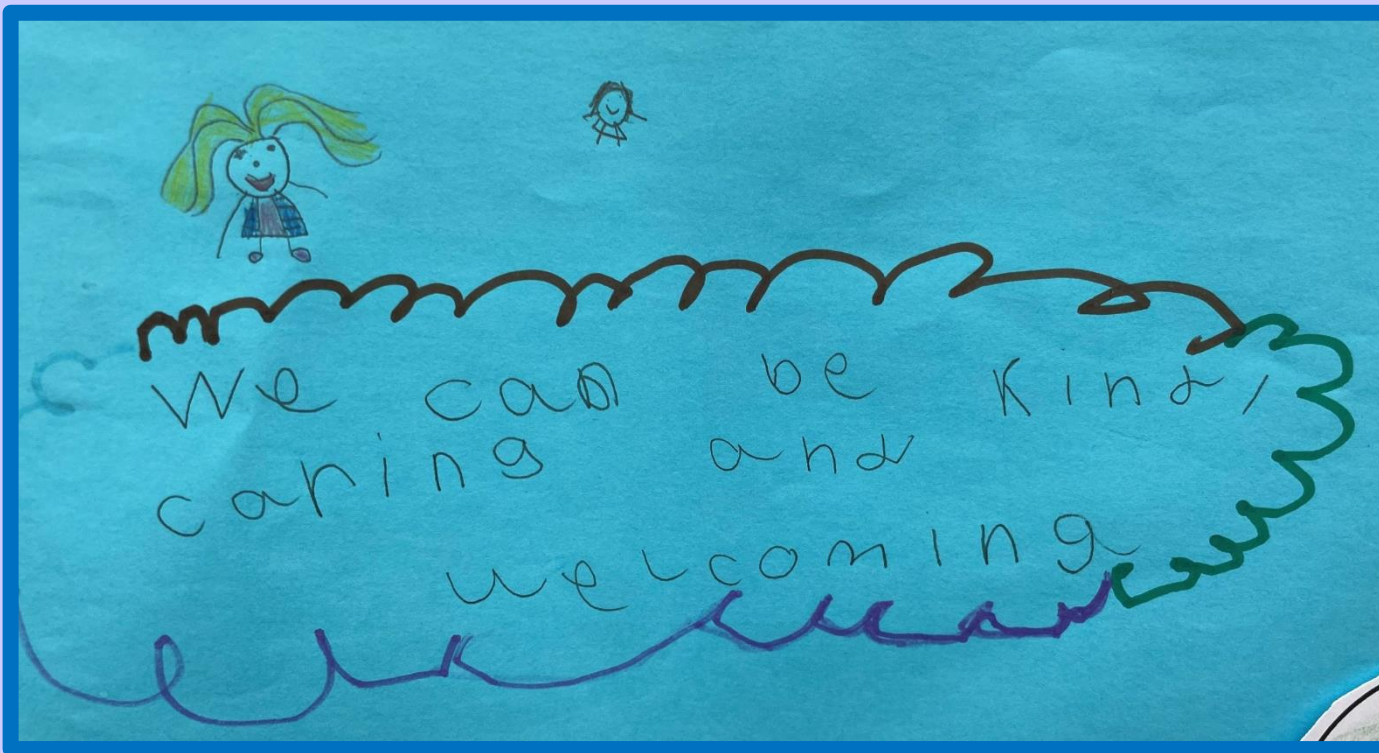 We can be kind,
caring and
welcoming